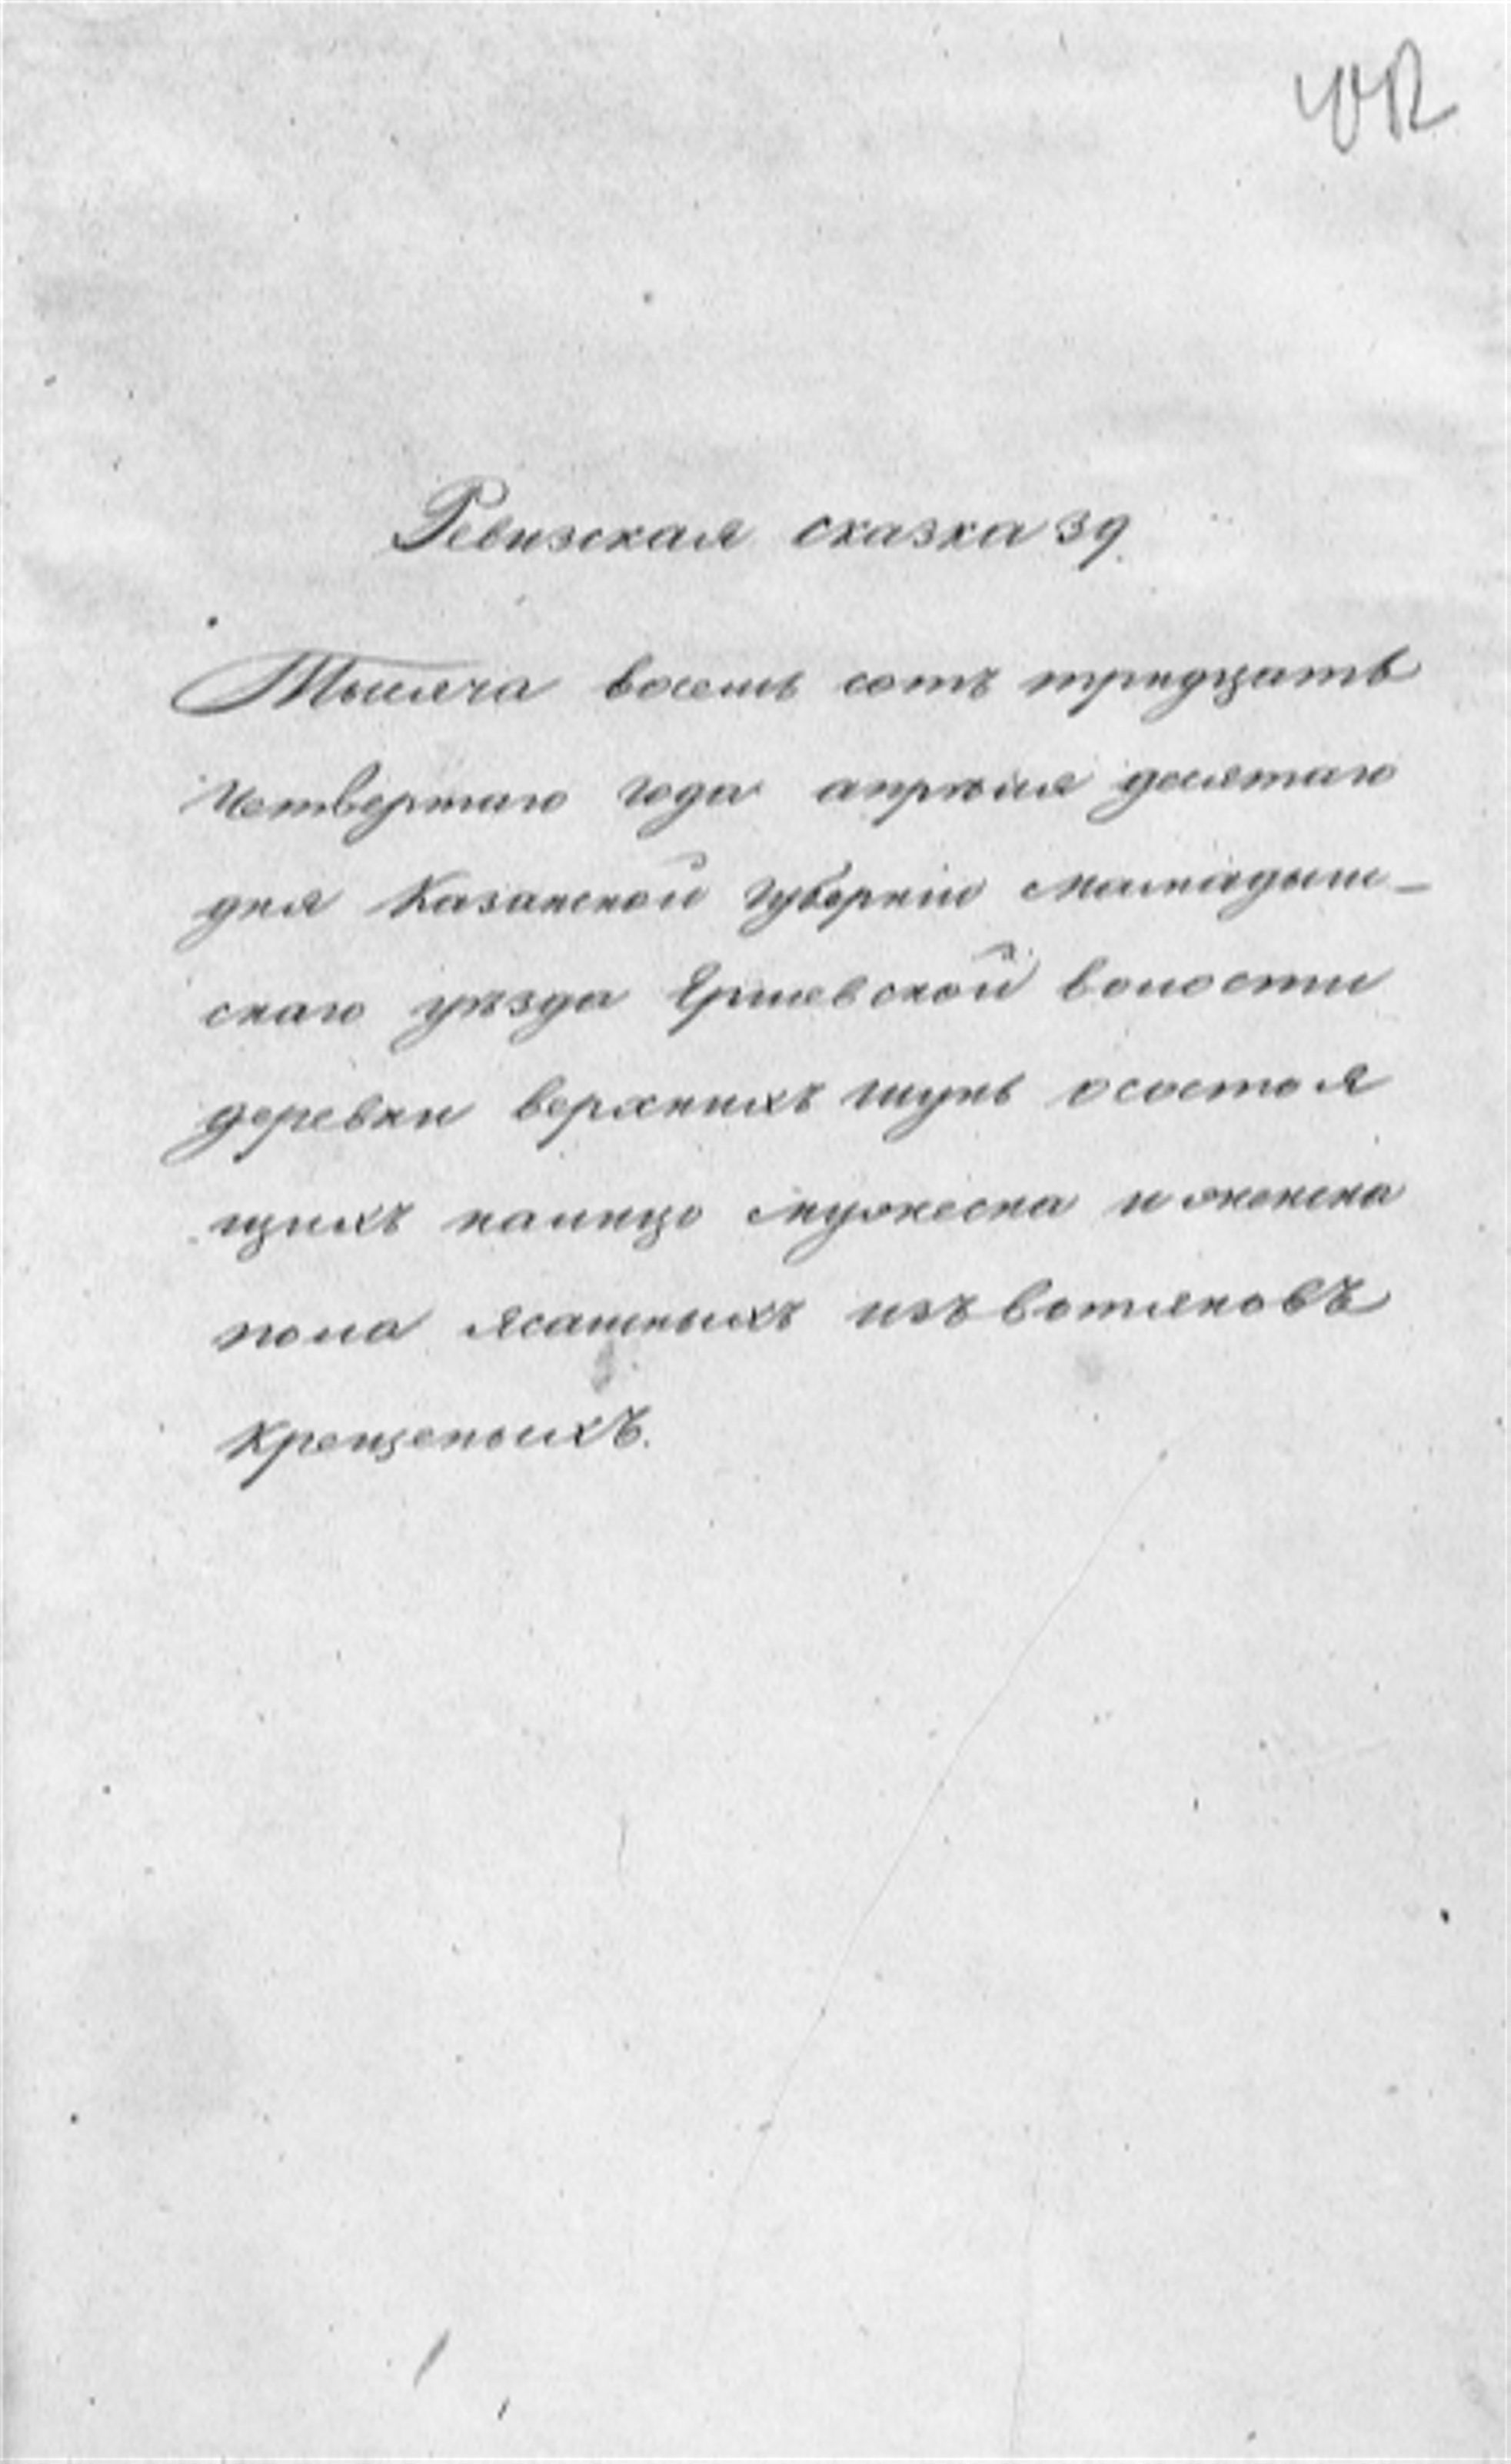 Ревизская сказка 39
Тысяча восемь сотъ тридцать
четвертаго года апрѣля десятаго
дня Казанской губерніи мамадыш-
скаго уѣзда Ершевской волости
деревни верхнихъ шунь о состоя
щихъ налицо мужеска и женска
пола ясашныхъ изъ вотяковъ
крещеныхъ.